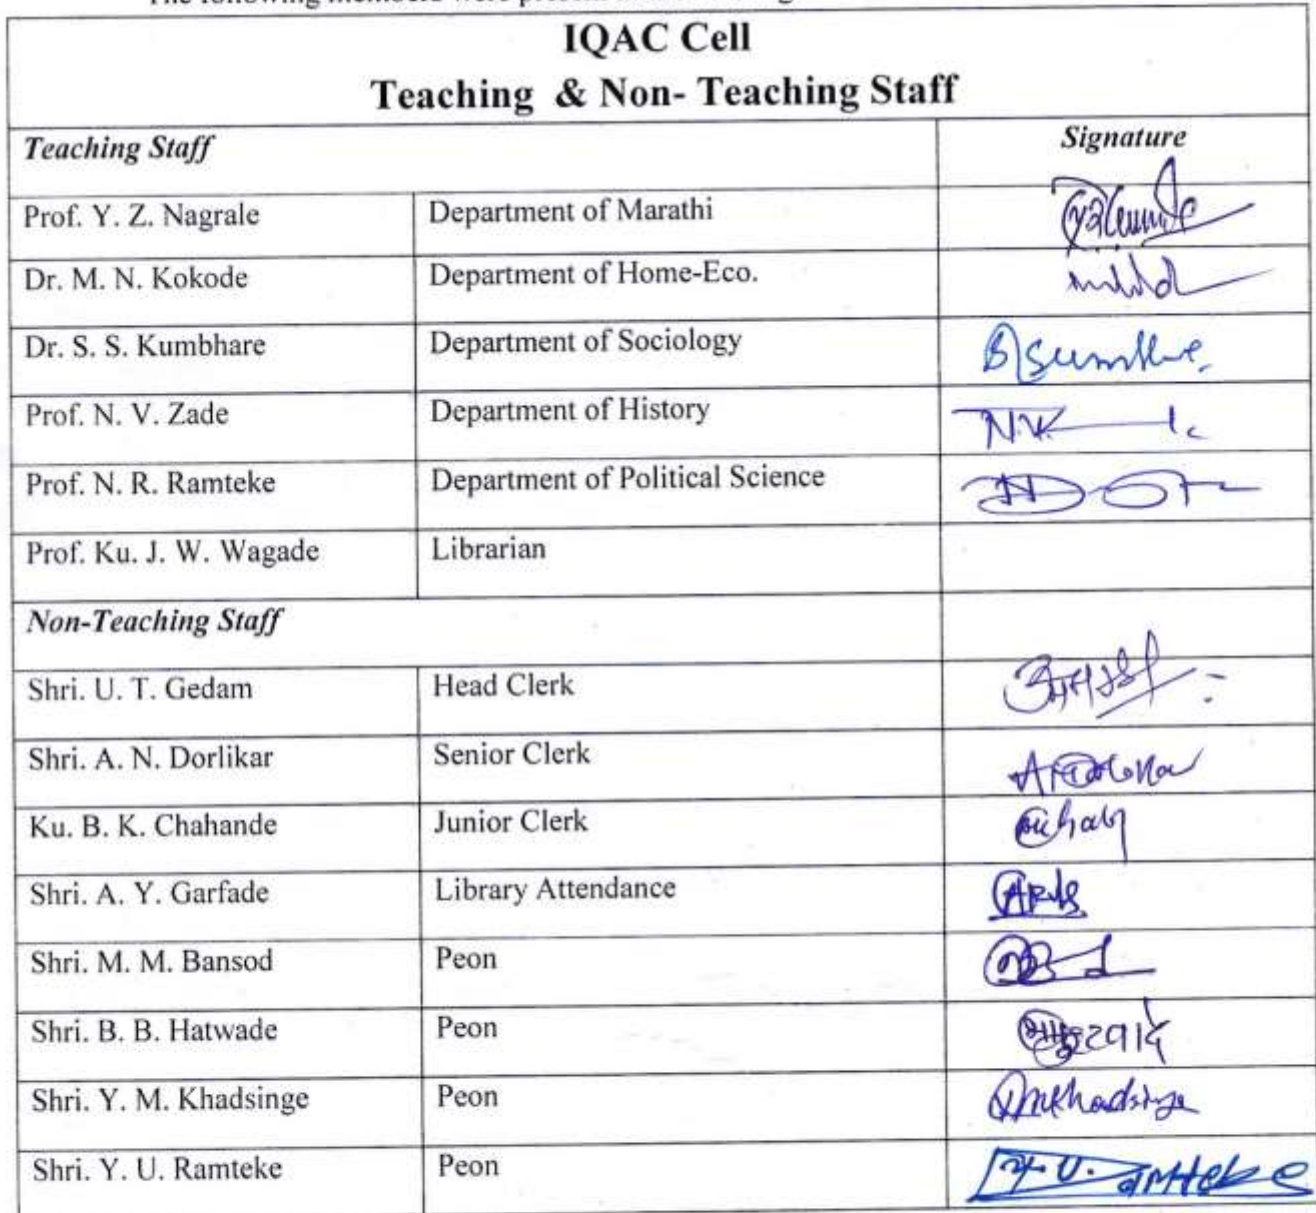 The following members were present
IQAC Cell
Teaching & Non- Teaching Staff
Teaching Staff Signature
Prof. Y. Z. Nagrale Department of Marathi
Dr. M. N. Kokode Department of Home-Eco.
Dr. S. S. Kumbhare Department of Sociology
Prof. N. V. Zade Department of History
Prof. N. R. Ramteke Department of Political Science
Prof. Ku. J. W. Wagade Librarian
Non-Teaching Staff
Shri. U. T. Gedam Head Clerk
Shri. A. N. Dorlikar Senior Clerk
Ku. B. K. Chahande Junior Clerk
Shri. A. Y. Garfade Library Attendance
Shri. M. M. Bansod Peon
Shri. B. B. Hatwade Peon
Shri. Y. M. Khadsinge Peon YMKhadsinge
Shri. Y. U. Ramteke Peon